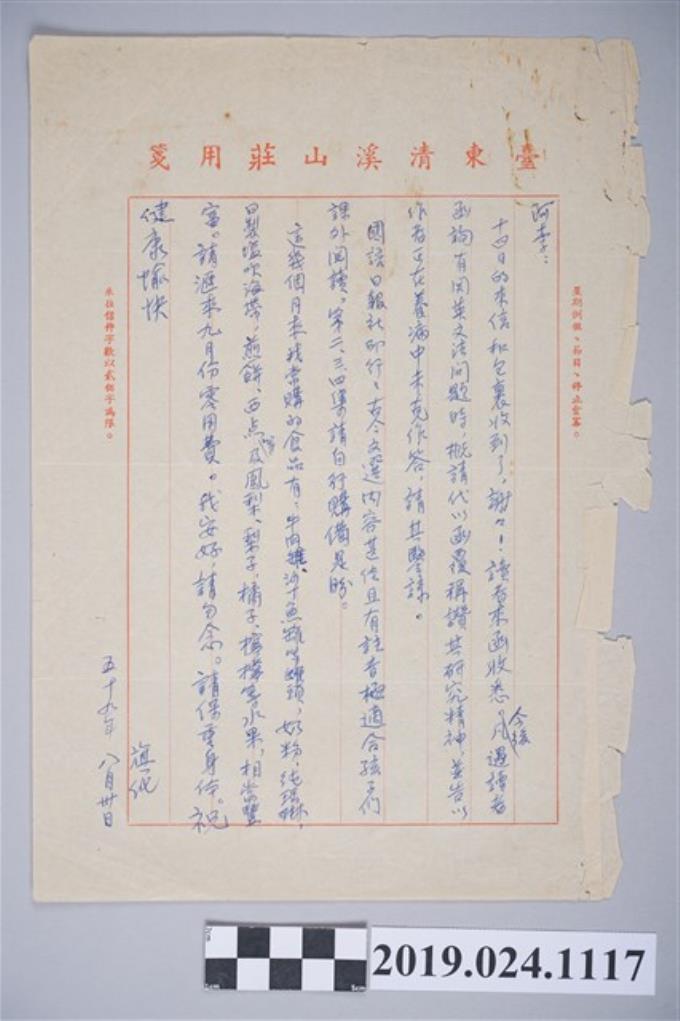 臺東清溪山莊用箋
星期例假、節日、停止會客。
阿李：
十四日的來信和包裹收到了，謝々！讀者來函收悉。今後凡遇讀者
函詢有関英文法问題時，概請代以函覆稱讚其研究精神，並告以
作者正在養病中未克作答，請其鑒諒。
國語日報社印行、古今文選内容甚佳且有註音極適合孩子们
課外阅讀。第二、三、四集請自行購備是盼。
這幾個月来我常購的食品有：牛肉罐、沙丁魚罐等罐頭，奶粉，
日製塩吹海帶，煎餅、西点及鳳梨、梨子，橘子、檳樣等水果，相當豐
富。請滙来九月份零用費。我安好，請勿念。請保重身体。祝
健康愉快
旗一伲
五十九年八月卅日
來往信件字數以貳佰字為限。
2019.024.1117